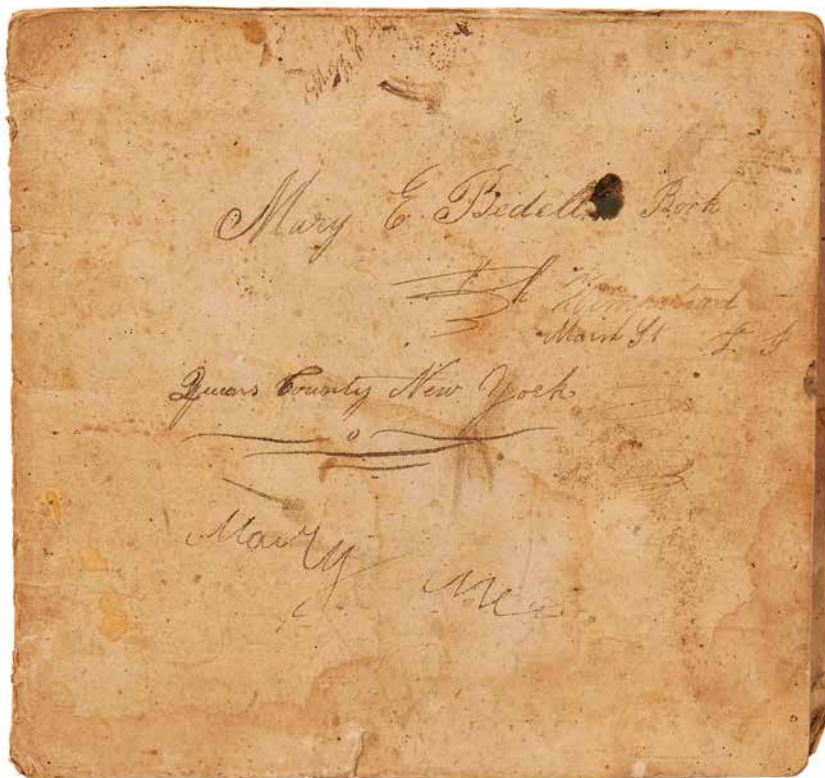 Mary E Bedell Book
Main St L I
Queens County New York
Mary